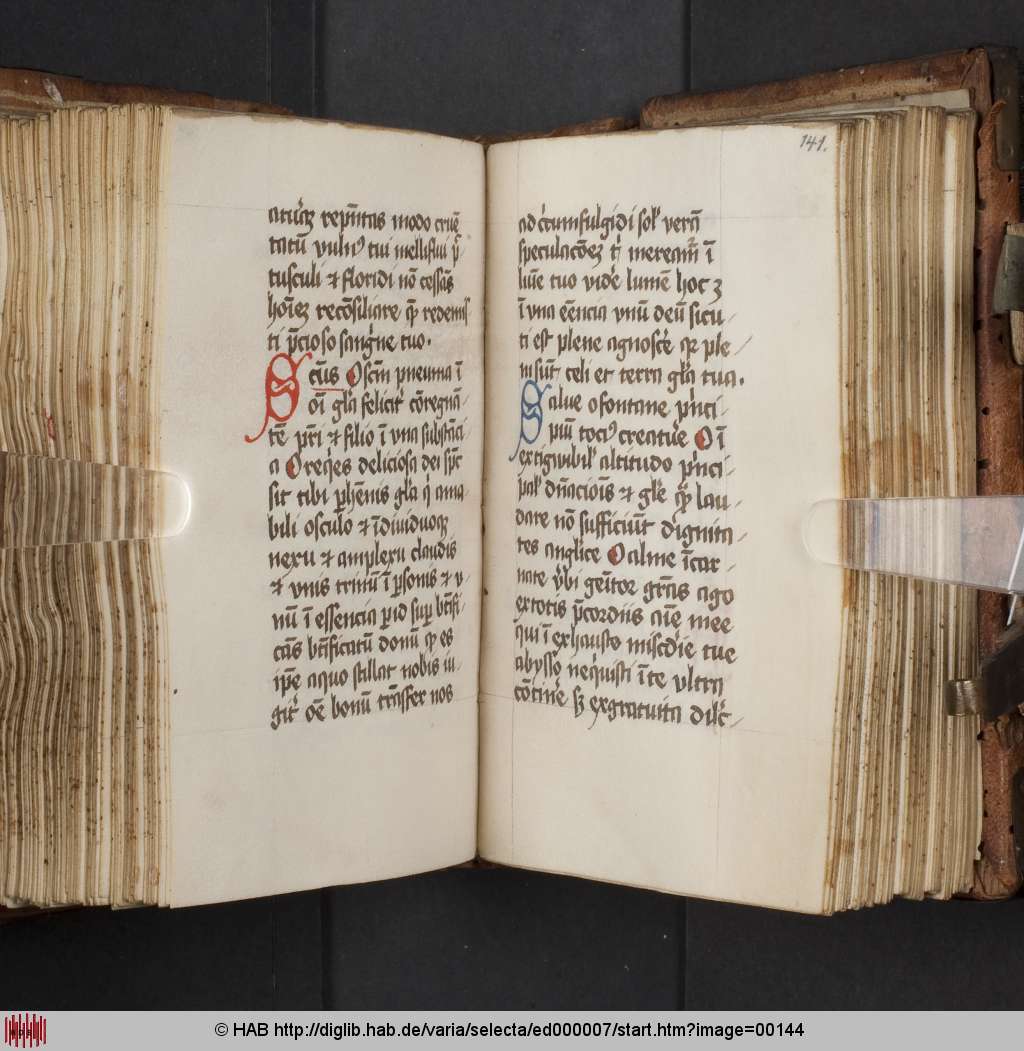 atur̃ rep̃ntas modo crue᷑
tatū vuln᷒ tui melliflui p̃
tusculi et floridi nō cessās
hoīez recōsiliare q̄ʒ redemis
ti p̄cioso sang̃ne tuo.
Sctūs Oscm̄ pneuma ī
oī gl̃a felicit᷑ cōregnā
tē pr̃i et filio ī vna substāci
a O req̃es deliciosa dei spc̄
sit tibi p̱hēnis gl̃a q̇ ama
bili osculo et īdiuiduoꝝ
nexu et amplexu claudis
et vnis trinū ī p̱sonis et v
nū ī essencia p̱id sup̱ bt̄ifi
cās bt̄ificatū donū q̄ es
ip̄e aquo stillat nobis iu
git᷑ oē bonū trāsfer nos
141.
ad ctum fulgidi sol᷑ verā
speculacōeʒ ut merear ī
luīe tuo videre lumē hoc ʒ
ī vna eēncia vnū deū sicu
ti est plene agnosce᷑ q̄ ple
ni sūt celi et terra gl̃a tua.
Salue o fontane p̃nci
piū toci᷒ creature O ī
extigwibil᷑ altitudo p̃nci
pal᷑ dn̄aciōis et gl̃e q̄ʒ lau
dare nō sufficiūt dignita
tes anglice O alme īcar
nate v̄bi genitor gr̃as ago
ex totis p̄cordiis aīe mee
qui ī exhausto misc̄die tue
abysso neq̇uisti īte vltra
cōtine᷑ sʒ ex gratuita dilc̄
© HAB http://diglib.hab.de/varia/selecta/ed000007/start.htm?image=00144